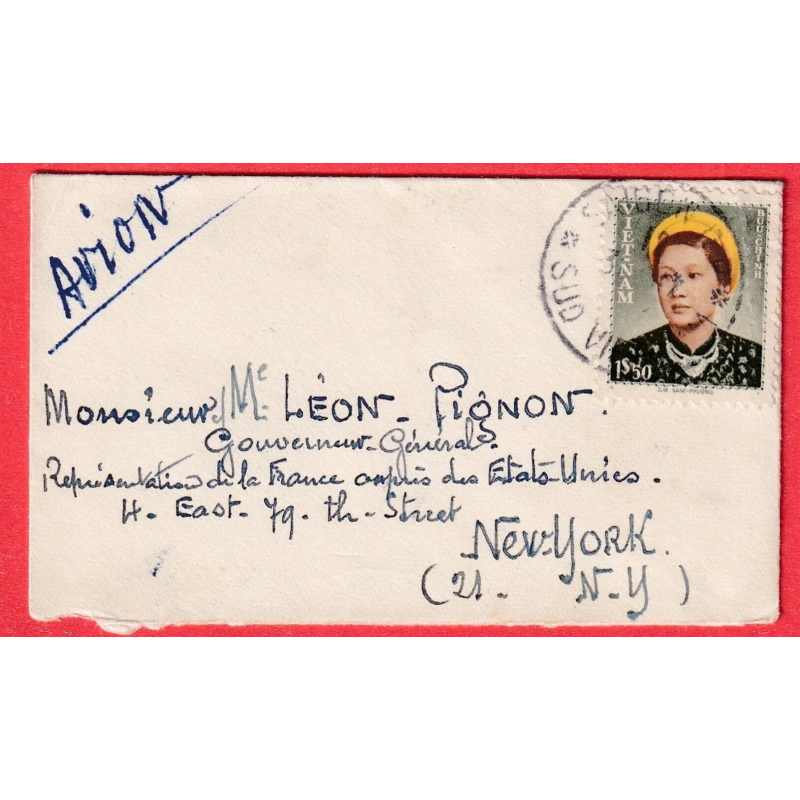 Avion
SAIGON
* SUD
VIET-NAM
BUU-CHINH
1$50
Monsieur / Me LÉON-PIGNON.
Gouverneur-Général
Représentation de la France auprès des Etats-Unies.
4. East. 79. th-Street
New-York.
(21. N-Y)